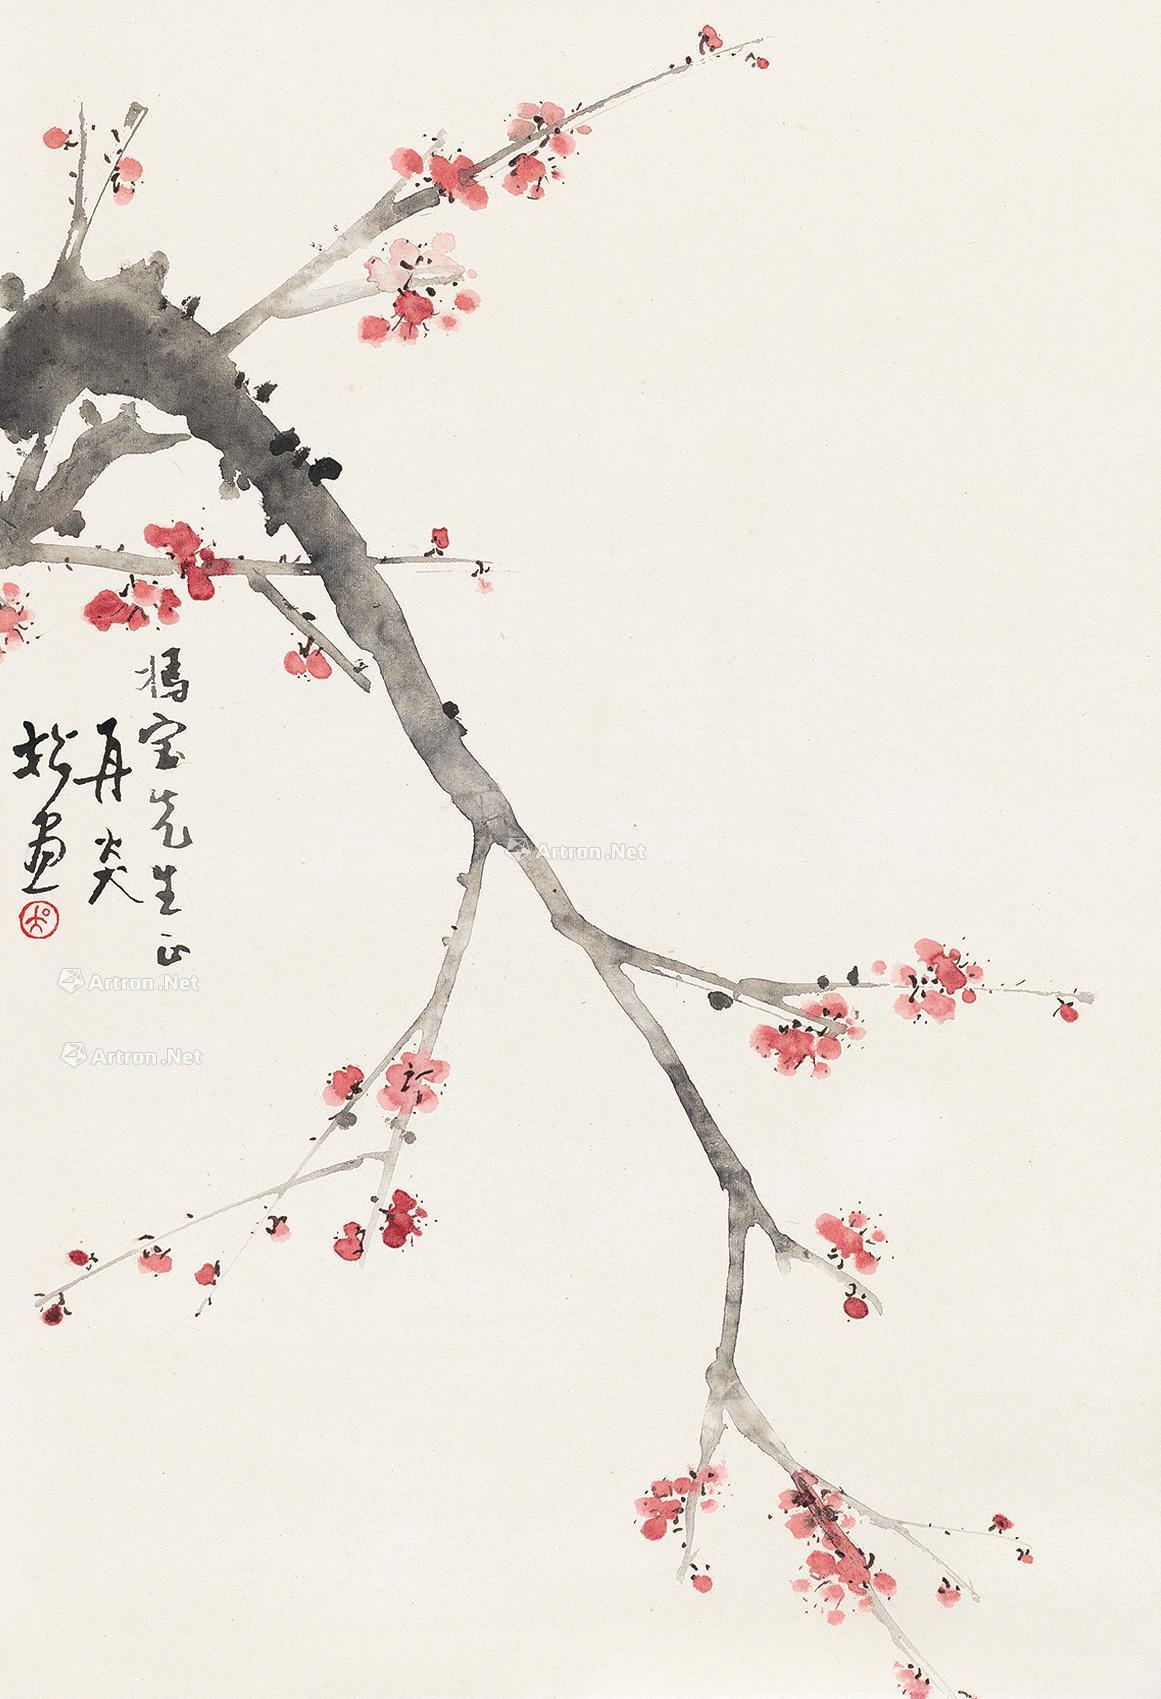 馮宝先生正
再炎
画
Artron.Net
Artron.Net
Artron.Net